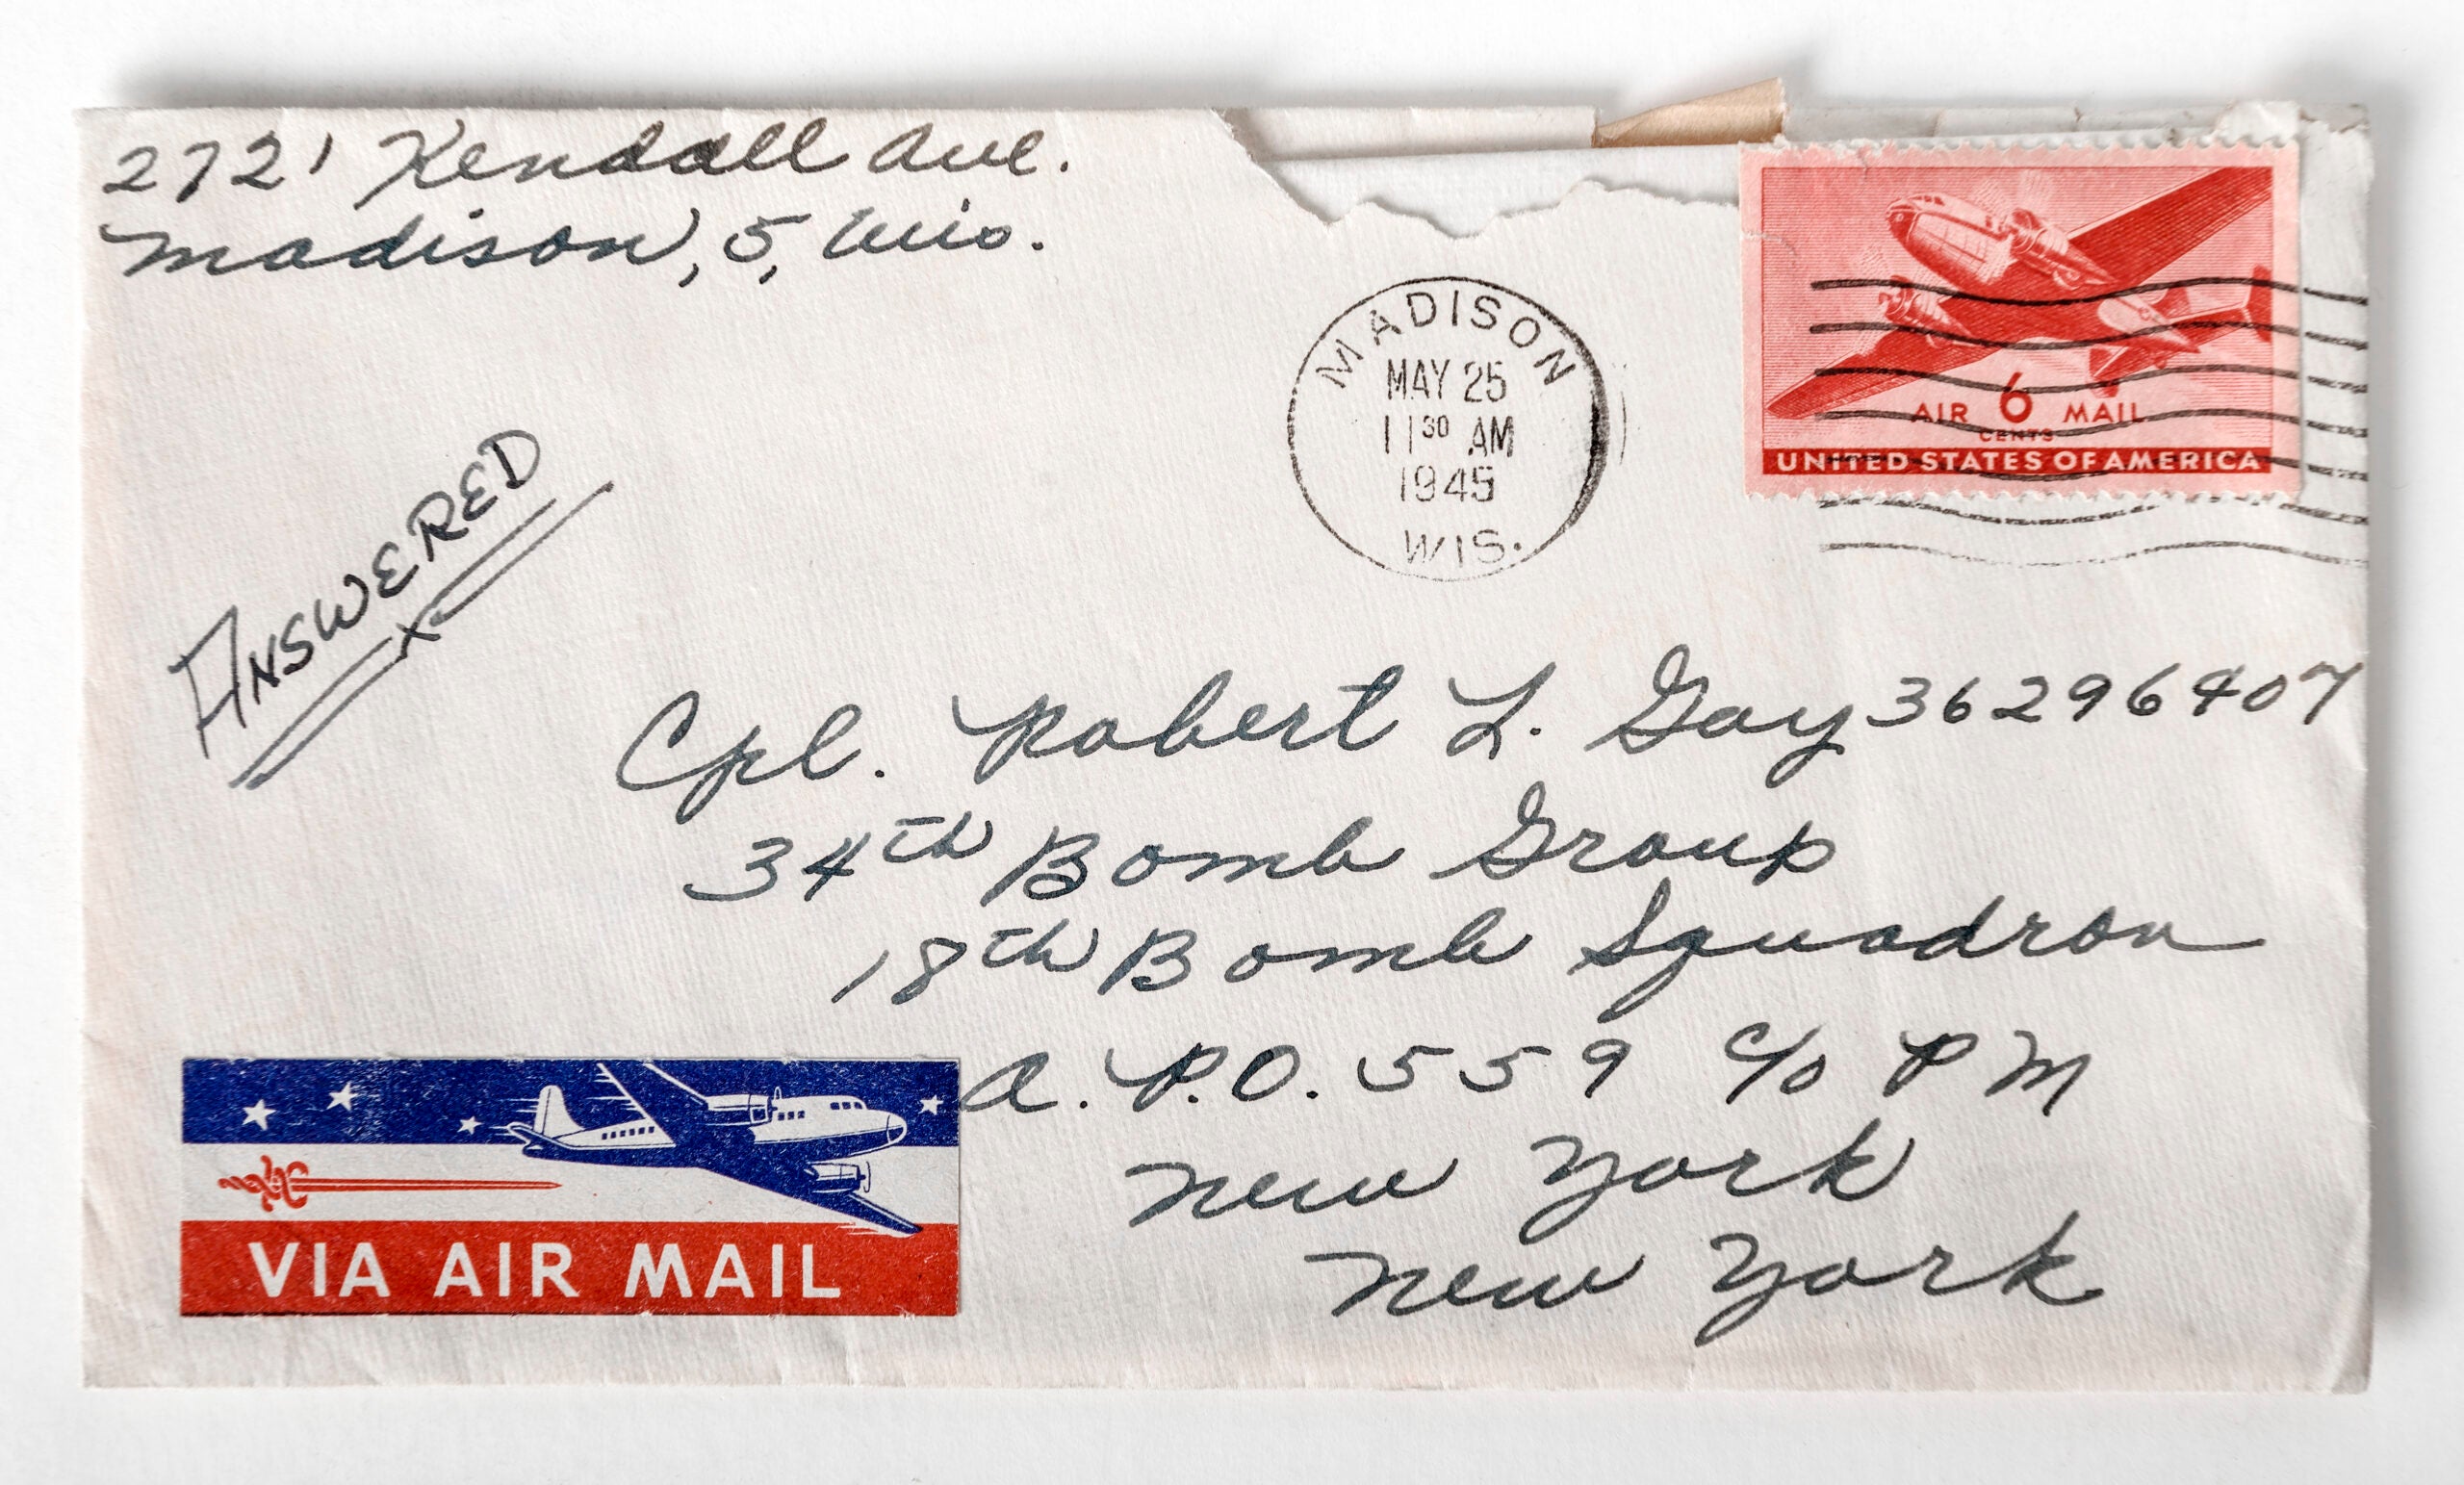 2721 Kendall Ave.
Madison, 5, Wis.
MADISON
MAY 25
11 30 AM
1945
WIS.
AIR 6 MAIL
CENTS
UNITED STATES OF AMERICA
ANSWERED
Cpl. Robert L. Gay 36296407
34th Bomb Group
18th Bomb Squadron
A.P.O. 559 c/o PM
New York
New York
VIA AIR MAIL